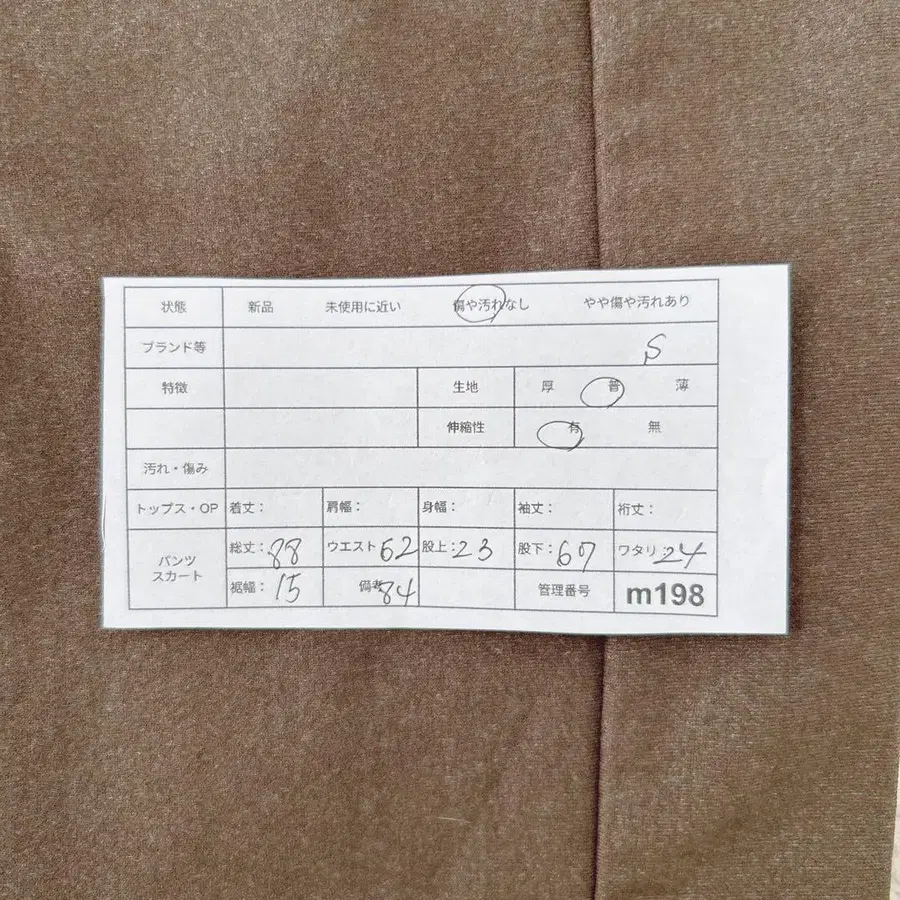 状態 新品 未使用に近い 傷や汚れなし やや傷や汚れあり
ブランド等 S
特徴 生地 厚 普 薄
伸縮性 有 無
汚れ・傷み
トップス・OP 着丈: 肩幅: 身幅: 袖丈: 裄丈:
パンツ スカート 総丈:88 ウエスト62 股上:23 股下:67 ワタリ:24
裾幅:15 備考84 管理番号 m198